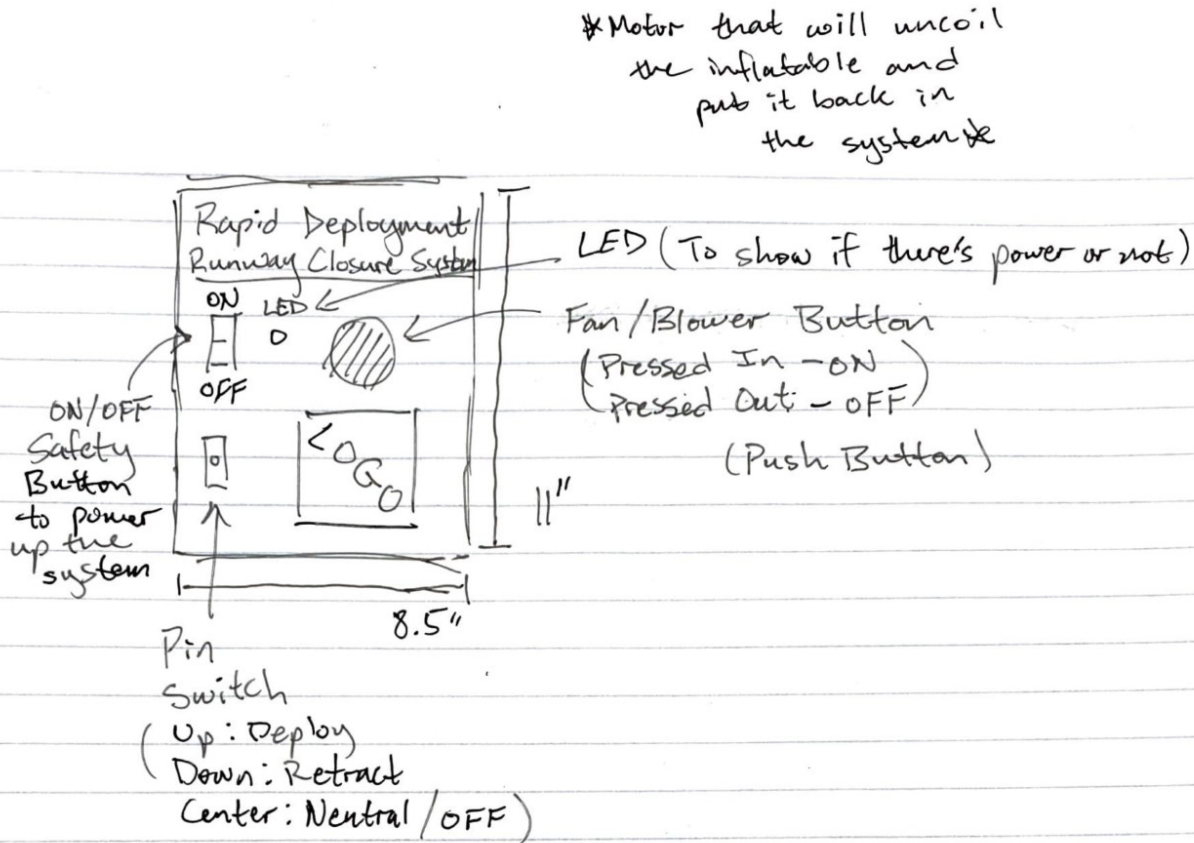 *Motor that will uncoil
the inflatable and
put it back in
the system*
Rapid Deployment
Runway Closure System
ON
LED
OFF
LOGO
LED (To show if there's power or not)
Fan/Blower Button
(Pressed In - ON
Pressed Out - OFF)
(Push Button)
ON/OFF
Safety
Button
to power
up the
system
11"
8.5"
Pin
Switch
(Up: Deploy
Down: Retract
Center: Neutral/OFF)